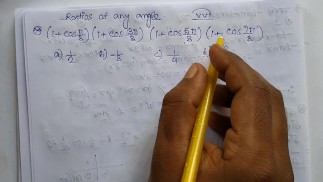 Ratios of any angle VVI
(1+cos π/8) (1+cos 3π/8) (1+cos 5π/8) (1+cos 7π/8)
a) 1/2 b) -1/8 c) 1/4